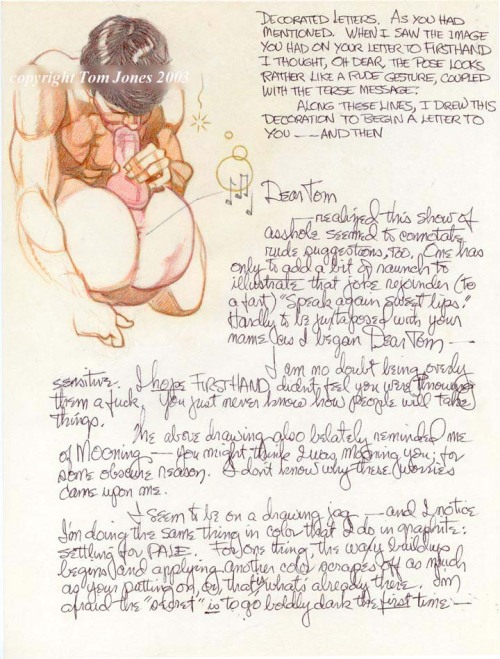 DECORATED LETTERS. AS YOU HAD
MENTIONED. WHEN I SAW THE IMAGE
YOU HAD ON YOUR LETTER TO FIRSTHAND
I THOUGHT, OH DEAR, THE POSE LOOKS
RATHER LIKE A RUDE GESTURE, COUPLED
WITH THE TERSE MESSAGE.
ALONG THESE LINES, I DREW THIS
DECORATION TO BEGIN A LETTER TO
YOU — — AND THEN
copyright Tom Jones 2003
Dear Tom
— realized this show of
asshole seemed to connotate
rude suggestions, too. One has
only to add a bit of raunch to
illustrate that joke rejoinder (to
a fart) "Speak again sweet lips."
Hardly to be juxtaposed with your
name (as I began Dear Tom —
I am no doubt being overly
sensitive. I hope FIRSTHAND didn't feel you were throwing
them a fuck. You just never know how people will take
things.
The above drawing also belately reminded me
of MOONING — you might think I was mooning you, for
some obscure reason. I don't know why these worries
came upon me.
I seem to be on a drawing jag — and I notice
I'm doing the same thing in color that I do in graphite:
settling for PALE. For one thing, the waxy buildup
begins and applying another color scrapes off as much
as your putting on, so that what's already there. I'm
afraid the "secret" is to go boldly dark the first time —